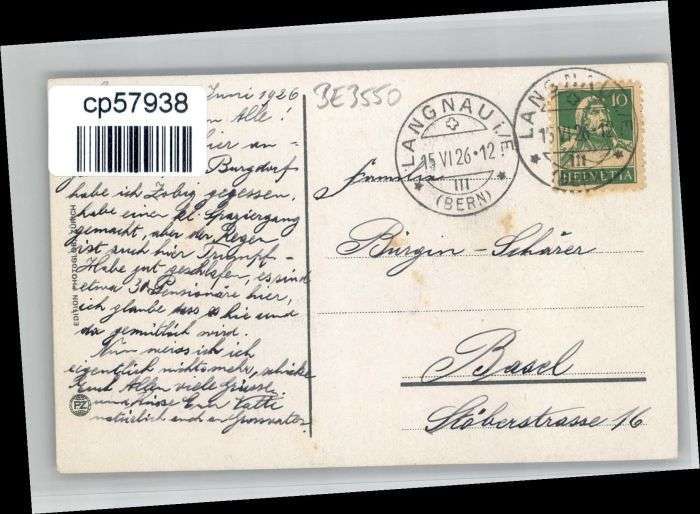 cp57938
BE3550
Juni 1926
Alle!
hier an-
Burgdorf
habe ich Zobig gegessen,
habe einen kl. Spaziergang
gemacht, aber der Regen
ist auch hier Trumpf-
Habe gut geschlafen, es sind
etwa 30 Pensionäre hier,
ich glaube dass es hie
da gemütlich wird.
Nun weiss ich ich
eigentlich nichts mehr, schicke
Euch Allen viele Grüsse
Euer Vatti
natürlich auch an Grossvater
EDITION PHOTOGLOB ZÜRICH
PZ
LANGNAU I/E
15 VI 26·12
III
(BERN)
LANGNAU
15 VI 26·12
III
(BE
10
HELVETIA
Familie
Bürgin-Schärer
Basel
Stöberstrasse 16